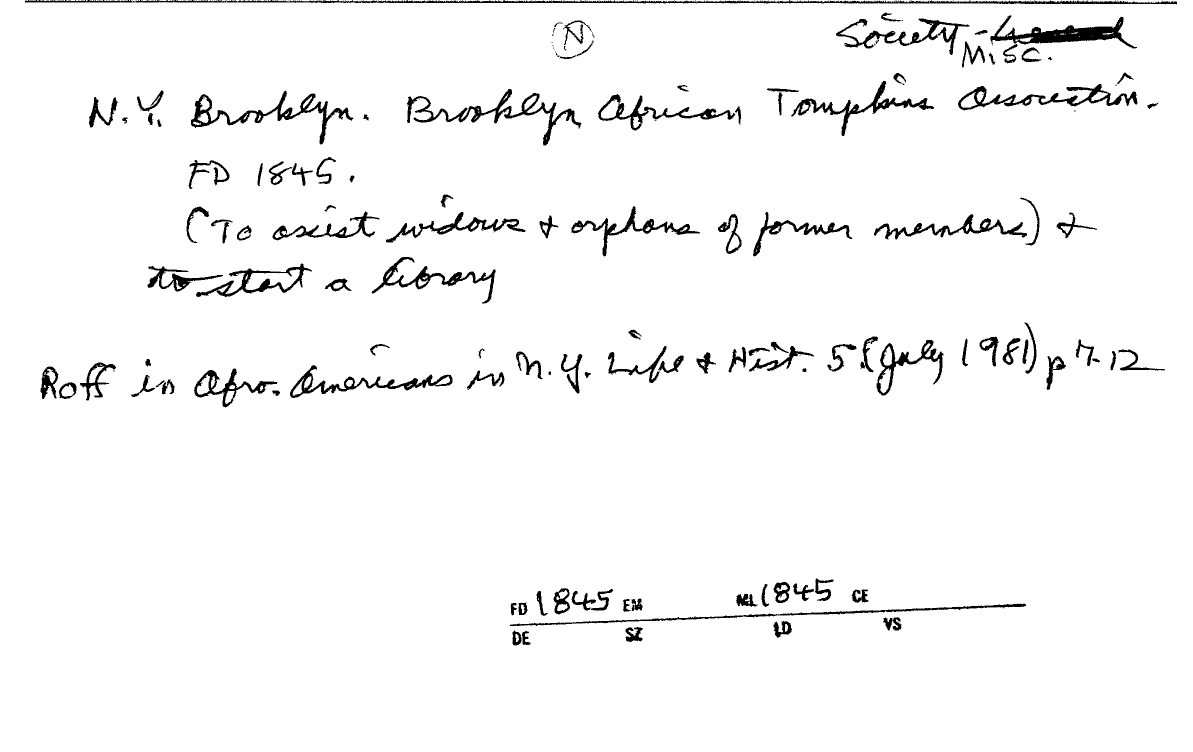 N
Society - General
Misc.
N.Y. Brooklyn. Brooklyn African Tompkins Association.
FD 1845.
(To assist widows & orphans of former members) &
to start a library
Roff in Afro. Americans in N.Y. Life & Hist. 5:(July 1981) p 7-12
FD 1845 EM ML 1845 CE
DE SZ LD VS